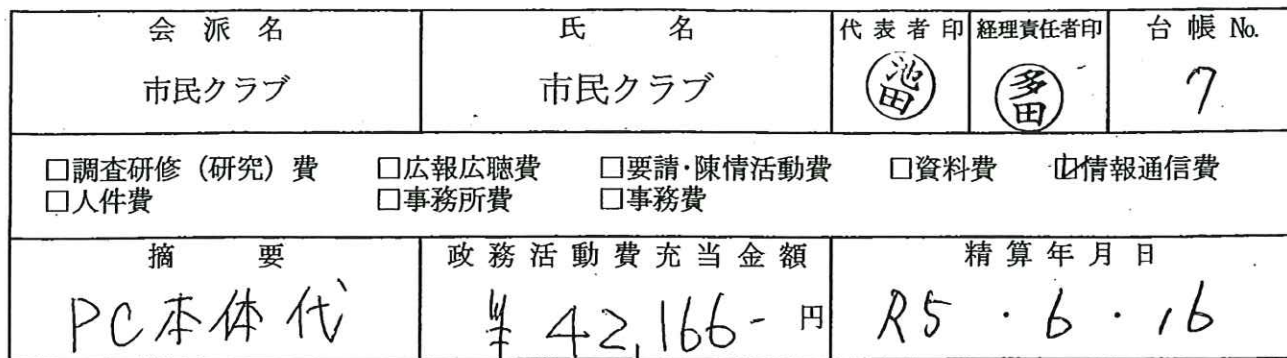 会派名 氏名 代表者印 経理責任者印 台帳No.
市民クラブ 市民クラブ 池田 多田 7
□調査研修(研究)費 □広報広聴費 □要請・陳情活動費 □資料費 ☑情報通信費
□人件費 □事務所費 □事務費
摘要 政務活動費充当金額 精算年月日
PC本体代 ¥42,166- 円 R5・6・16